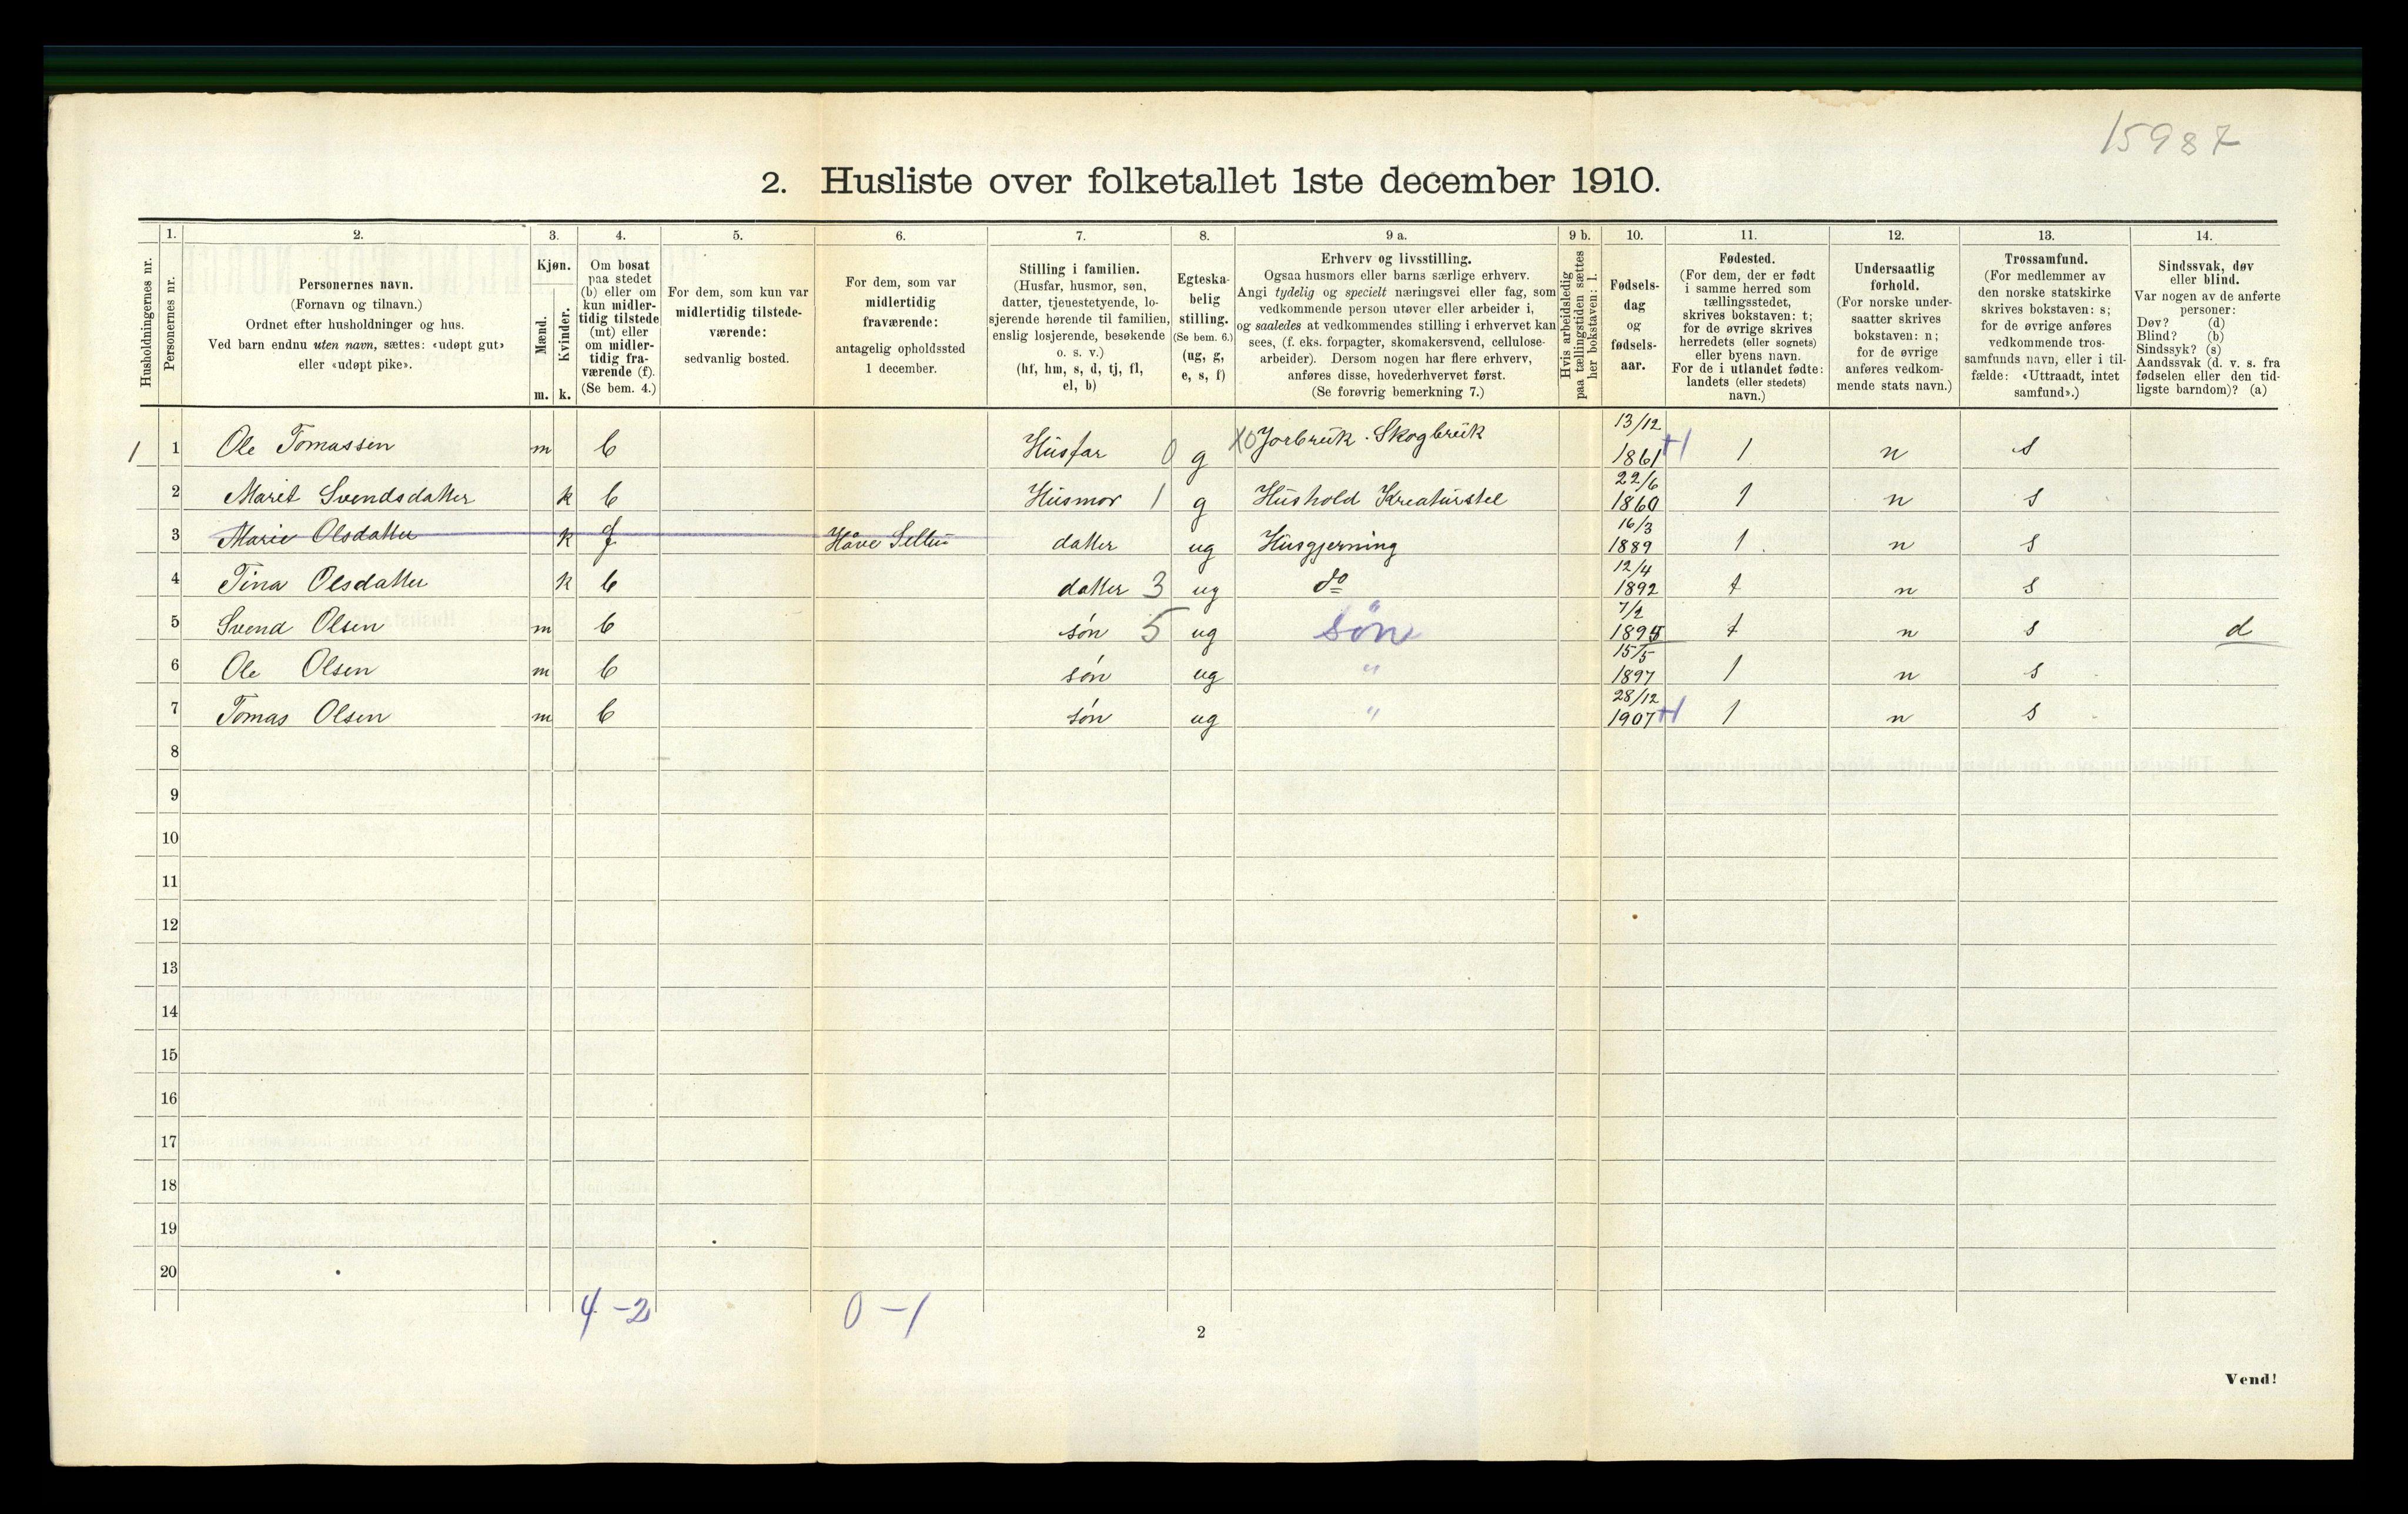 15987
2. Husliste over folketallet 1ste december 1910.
Husholdningernes nr.
1.
Personernes nr.
2.
Personernes navn.
(Fornavn og tilnavn.)
Ordnet efter husholdninger og hus.
Ved barn endnu uten navn, sættes: «udøpt gut»
eller «udøpt pike».
3.
Kjøn.
Mænd.
Kvinder.
m. k.
4.
Om bosat
paa stedet
(b) eller om
kun midler-
tidig tilstede
(mt) eller
om midler-
tidig fra-
værende (f).
(Se bem. 4.)
5.
For dem, som kun var
midlertidig tilstede-
værende:
sedvanlig bosted.
6.
For dem, som var
midlertidig
fraværende:
antagelig opholdssted
1 december.
7.
Stilling i familien.
(Husfar, husmor, søn,
datter, tjenestetyende, lo-
sjerende hørende til familien,
enslig losjerende, besøkende
o. s. v.)
(hf, hm, s, d, tj, fl,
el, b)
8.
Egteska-
belig
stilling.
(Se bem. 6.)
(ug, g,
e, s, f)
9 a.
Erhverv og livsstilling.
Ogsaa husmors eller barns særlige erhverv.
Angi tydelig og specielt næringsvei eller fag, som
vedkommende person utøver eller arbeider i,
og saaledes at vedkommendes stilling i erhvervet kan
sees, (f. eks. forpagter, skomakersvend, cellulose-
arbeider). Dersom nogen har flere erhverv,
anføres disse, hovederhvervet først.
(Se forøvrig bemerkning 7.)
9 b.
Hvis arbeidsledig
paa tællingstiden sættes
her bokstaven: l.
10.
Fødsels-
dag
og
fødsels-
aar.
11.
Fødested.
(For dem, der er født
i samme herred som
tællingsstedet,
skrives bokstaven: t;
for de øvrige skrives
herredets (eller sognets)
eller byens navn.
For de i utlandet fødte:
landets (eller stedets)
navn.)
12.
Undersaatlig
forhold.
(For norske under-
saatter skrives
bokstaven: n;
for de øvrige
anføres vedkom-
mende stats navn.)
13.
Trossamfund.
(For medlemmer av
den norske statskirke
skrives bokstaven: s;
for de øvrige anføres
vedkommende tros-
samfunds navn, eller i til-
fælde: «Uttraadt, intet
samfund».)
14.
Sindssvak, døv
eller blind.
Var nogen av de anførte
personer:
Døv? (d)
Blind? (b)
Sindssyk? (s)
Aandssvak (d. v. s. fra
fødselen eller den tid-
ligste barndom)? (a)
1 1 Ole Tomassen m b Husfar 0 g X0 Jorbruk. Skogbruk 13/12 1861 +1 t n s
2 Marit Svendsdatter k b Husmor 1 g Hushold Kreaturstel 22/6 1860 t n s
3 Marie Olsdatter k f datter ug Husgjerning 16/3 1889 t n s
4 Tina Olsdatter k b datter 3 ug do 12/4 1892 t n s
5 Svend Olsen m b søn 5 ug søn 7/2 1895 t n s d
6 Ole Olsen m b søn ug " 15/5 1897 t n s
7 Tomas Olsen m b søn ug " 28/12 1907 +1 t n s
8
9
10
11
12
13
14
15
16
17
18
19
20
4-2 0-1
2
Vend!